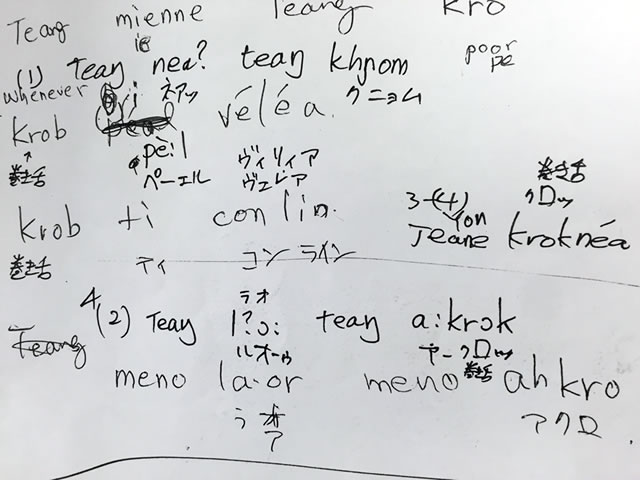 Teang mienne Teang kro
ie
(1) teaŋ nea? teaŋ khɲom poor
pe
whenever ネアッ クニョム
krob véléa.
巻き舌 pè:l ヴィリィア
ペーエル ヴェレア
巻き舌
3-(4) クロッ
yon
krob ti con lin. Jeane kroknéa
巻き舌 ティ コン ライン
4 ラオ
(2) Teaŋ l?ɔ: teaŋ a:krok
Teang ルオーゥ アークロッ
meno la-or meno 巻き舌 ah kro
ラオ アクロ
ア